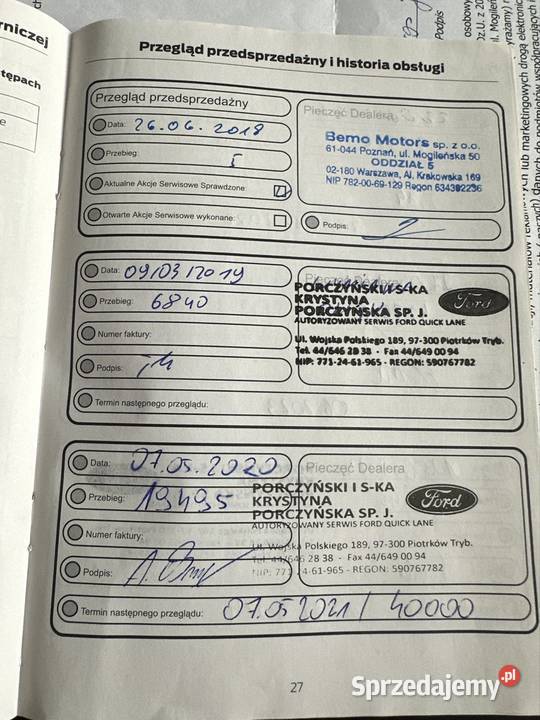 rniczej
tępach
e
Podpis
Przegląd przedsprzedażny i historia obsługi
Przegląd przedsprzedażny
Data: 26.06.2018
Przebieg:
Aktualne Akcje Serwisowe Sprawdzone:
Otwarte Akcje Serwisowe wykonane:
Pieczęć Dealera
Bemo Motors sp. z o.o.
61-044 Poznań, ul. Mogileńska 50
ODDZIAŁ 5
02-180 Warszawa, Al. Krakowska 169
NIP 782-00-69-129 Regon 634392236
Podpis:
Data: 09/03/2019
Przebieg: 6840
Numer faktury:
Podpis:
Termin następnego przeglądu:
Pieczęć Dealera
PORCZYŃSKI I S-KA
KRYSTYNA
PORCZYŃSKA SP. J.
AUTORYZOWANY SERWIS FORD QUICK LANE
Ford
Ul. Wojska Polskiego 189, 97-300 Piotrków Tryb.
Tel. 44/646 28 38 - Fax 44/649 00 94
NIP: 771-24-61-965 - REGON: 590767782
Data: 07.05.2020
Przebieg: 19495
Numer faktury:
Podpis:
Termin następnego przeglądu: 07.05 2021 / 40000
Pieczęć Dealera
PORCZYŃSKI I S-KA
KRYSTYNA
PORCZYŃSKA SP. J.
AUTORYZOWANY SERWIS FORD QUICK LANE
Ford
Ul. Wojska Polskiego 189, 97-300 Piotrków Tryb.
Tel. 44/646 28 38 - Fax 44/649 00 94
NIP: 771-24-61-965 - REGON: 590767782
27
Sprzedajemy.pl